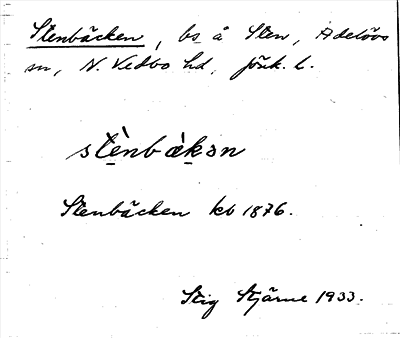 Stenbäcken, bs å Sten, Adelövs
sn, N. Vedbo hd, jönk. l.
stènbækən
Stenbäcken kb 1876.
Stig Stjärne 1933.